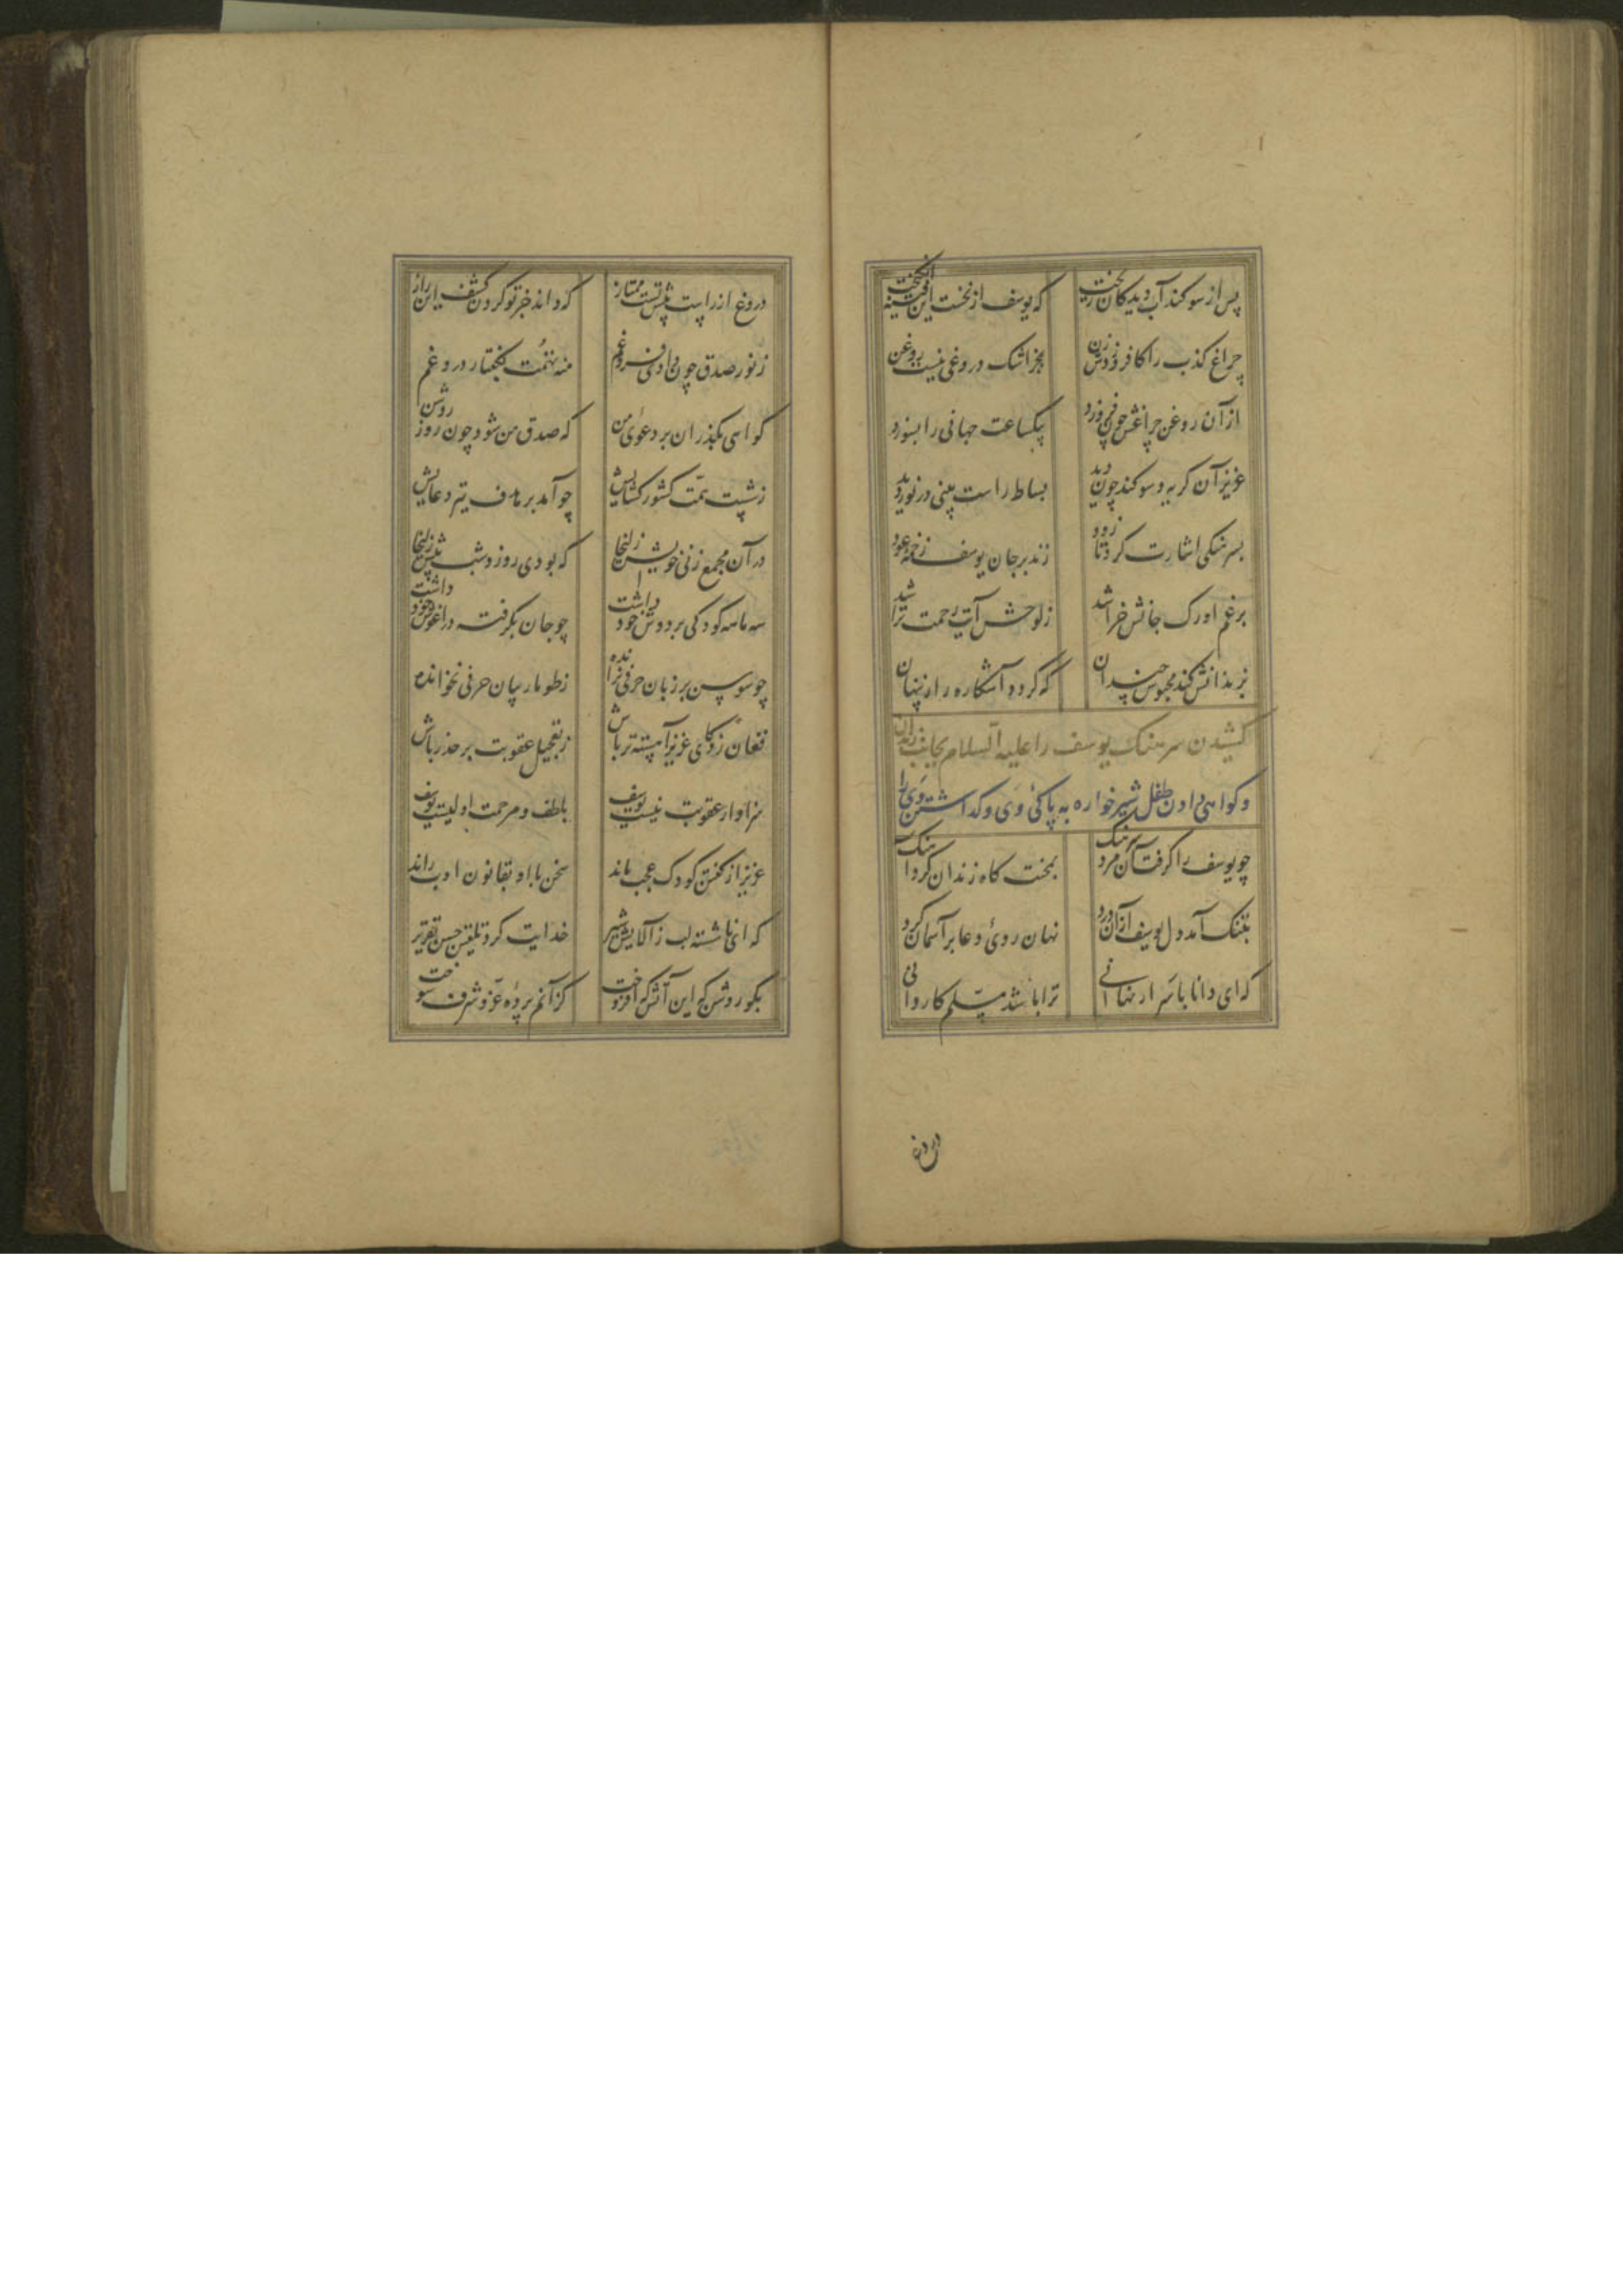 پس از سوکند آب دیدکان ریخت که یوسف از نخست این فتنه انکیخت
چراغ کذب را کافروزدش زن بجز اشک دروغی نیست روغن
از آن روغن چراغش چون فروزد بیکساعت جهانی را بسوزد
عزیز آن کریه و سوکند چون دید بساط راست بینی در نوردید
بسرهنکی اشارت کرد تا زود زند بر جان یوسف زخمه عود
بزخم او رک جانش خراشد ز لوحش آیت رحمت تراشد
بزندانش کند محبوس چندان که کردد آشکارا راز پنهان
کشیدن سرهنک یوسف را علیه السلام بجانب زندان
و کواهی دادن طفل شیر خواره به پاکئ وی و کذاشتن وی را
چو یوسف را کرفت آن مرد سرهنک بمحنت کاه زندان کرد آهنک
بتنک آمد دل یوسف از آن درد نهان روئ دعا بر آسمان کرد
که ای دانا باسرار نهانی ترا باشد مسلم کاردانی
دروغ
دروغ از راست پیش تست ممتاز که داند جز تو کردن کشف این راز
ز نور صدق چون دادی فروغم منه تهمت بکفتار دروغم
کواهی بکذران بر دعوئ من که صدق من شود چون روز روشن
ز شست همت کشور کشایش چو آمد بر هدف تیر دعایش
در آن مجمع زنی خویش زلیخا که بودی روز و شب پیش زلیخا
سه ماهه کودکی بر دوش خود داشت چو جان بکرفته در آغوش خود داشت
چو سوسن بر زبان حرفی نرانده ز طومار بیان حرفی نخوانده
فغان زد کای عزیز آهسته تر باش ز تعجیل عقوبت بر حذر باش
سزاوار عقوبت نیست یوسف بلطف و مرحمت اولیست یوسف
عزیز از کفتن کودک عجب ماند سخن با او بقانون ادب راند
که ای ناشسته لب ز آلایش شیر خدایت کرد تلقین حسن تقریر
بکو روشن که این آتش که افروخت کز آنم پرده عز و شرف سوخت